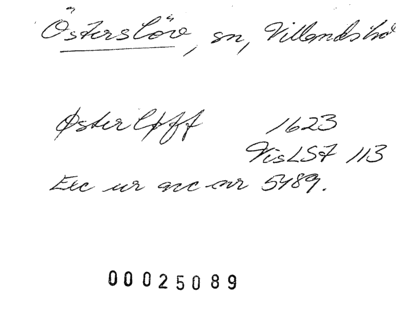 Österslöv, sn, Villands hd
Østerløff 1623
VisLSF 113
Exc ur acc nr 5489.
00025089